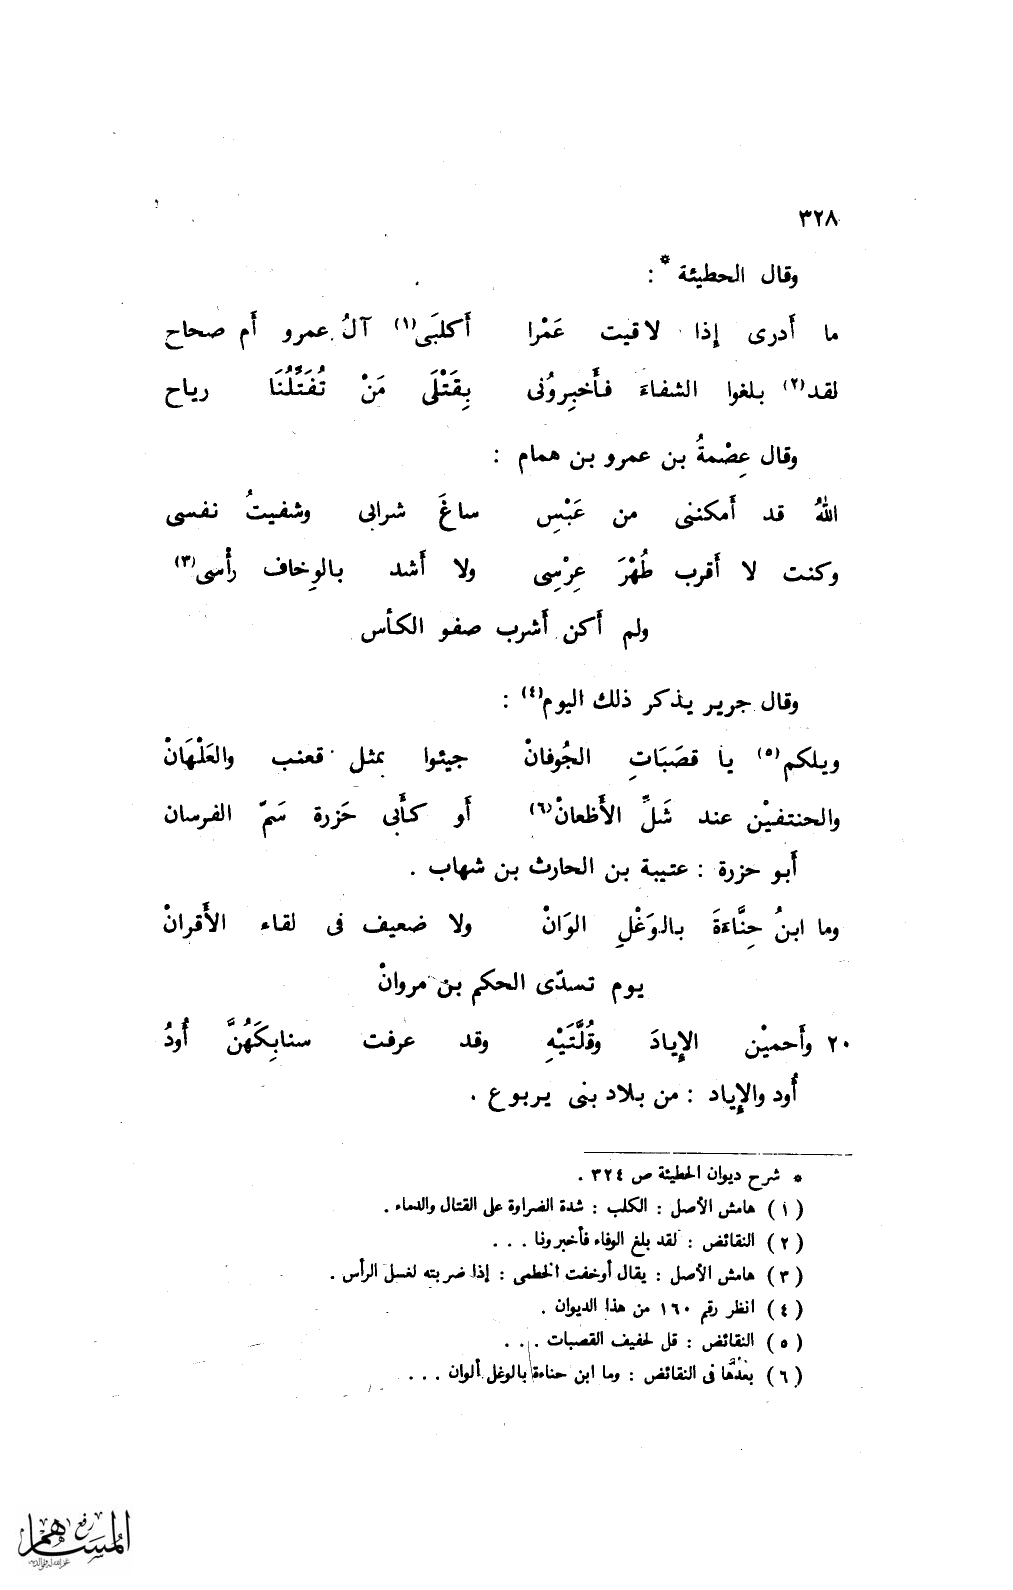 ٣٢٨
وقال الحطيئة * :
ما أَدرى إِذا لاقيت عَمْرا أَكلبَى(١) آلُ عمرو أَم صحاح
لقد(٢) بلغوا الشفاءَ فأَخبِرونُى بِقَتْلَى مَنْ تُقَتِّلُنَا رياح
وقال عِصْمةُ بن عمرو بن همام :
اللهُ قد أَمكننى من عَبْسِ ساغَ شرابى وشفيتُ نفسى
وكنت لا أَقرب طُهْرَ عِرْسِى ولا أَشد بالوِخاف رأْسى(٣)
ولم أَكن أَشرب صفو الكأس
وقال جرير يذكر ذلك اليوم(٤) :
ويلكم(٥) يا قصَبَاتِ الجُوفانْ جيئوا بمثل قعنب والعَلْهَانْ
والحنتفيْن عند شَلِّ الأَظعانْ(٦) أَو كأَبى حَزرة سَمّ الفرسان
أَبو حزرة : عتيبة بن الحارث بن شهاب .
وما ابنُ حِنَّاءَةَ بالوَغْلِ الوَانْ ولا ضعيف فى لقاء الأَقرانْ
يوم تسدّى الحكم بن مروانْ
٢٠ وأَحميْن الإِيادَ وقُلَّتَيْهِ وقد عرفت سنابِكَهُنَّ أُودُ
أُود والإِياد : من بلاد بنى يربوع .
* شرح ديوان الحطيئة ص ٣٢٤ .
(١) هامش الأصل : الكلب : شدة الضراوة على القتال والدماء .
(٢) النقائض : لقد بلغ الوفاء فأخبرونا . . .
(٣) هامش الأصل : يقال أوخفت الخطمى : إذا ضربته لغسل الرأس .
(٤) انظر رقم ١٦٠ من هذا الديوان .
(٥) النقائض : قل لحفيف القصبات . . .
(٦) بعْدُها فى النقائض : وما ابن حناءة بالوغل ألوان . . .
رفع
المساهم